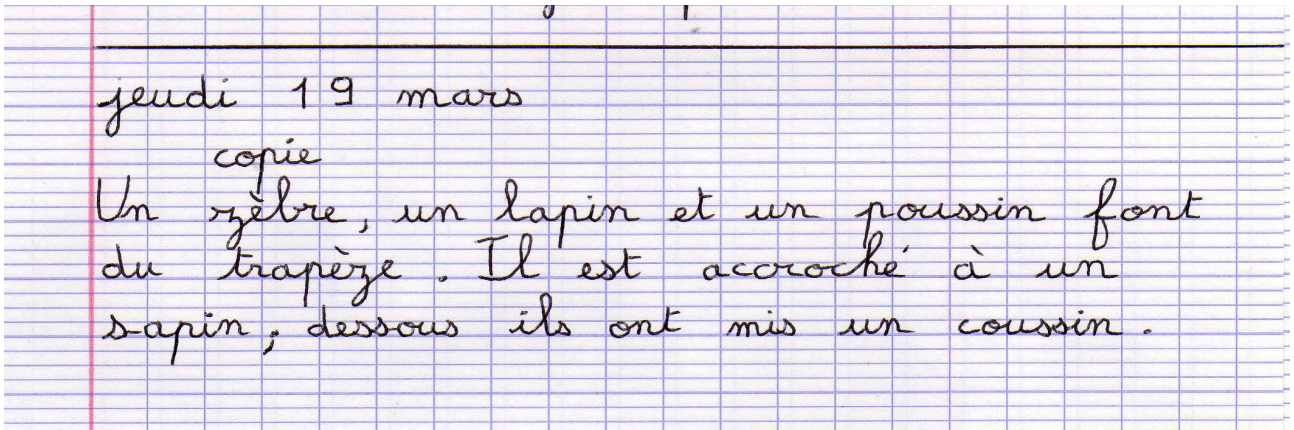 jeudi 19 mars
copie
Un zèbre, un lapin et un poussin font
du trapèze. Il est accroché à un
sapin; dessous ils ont mis un coussin.